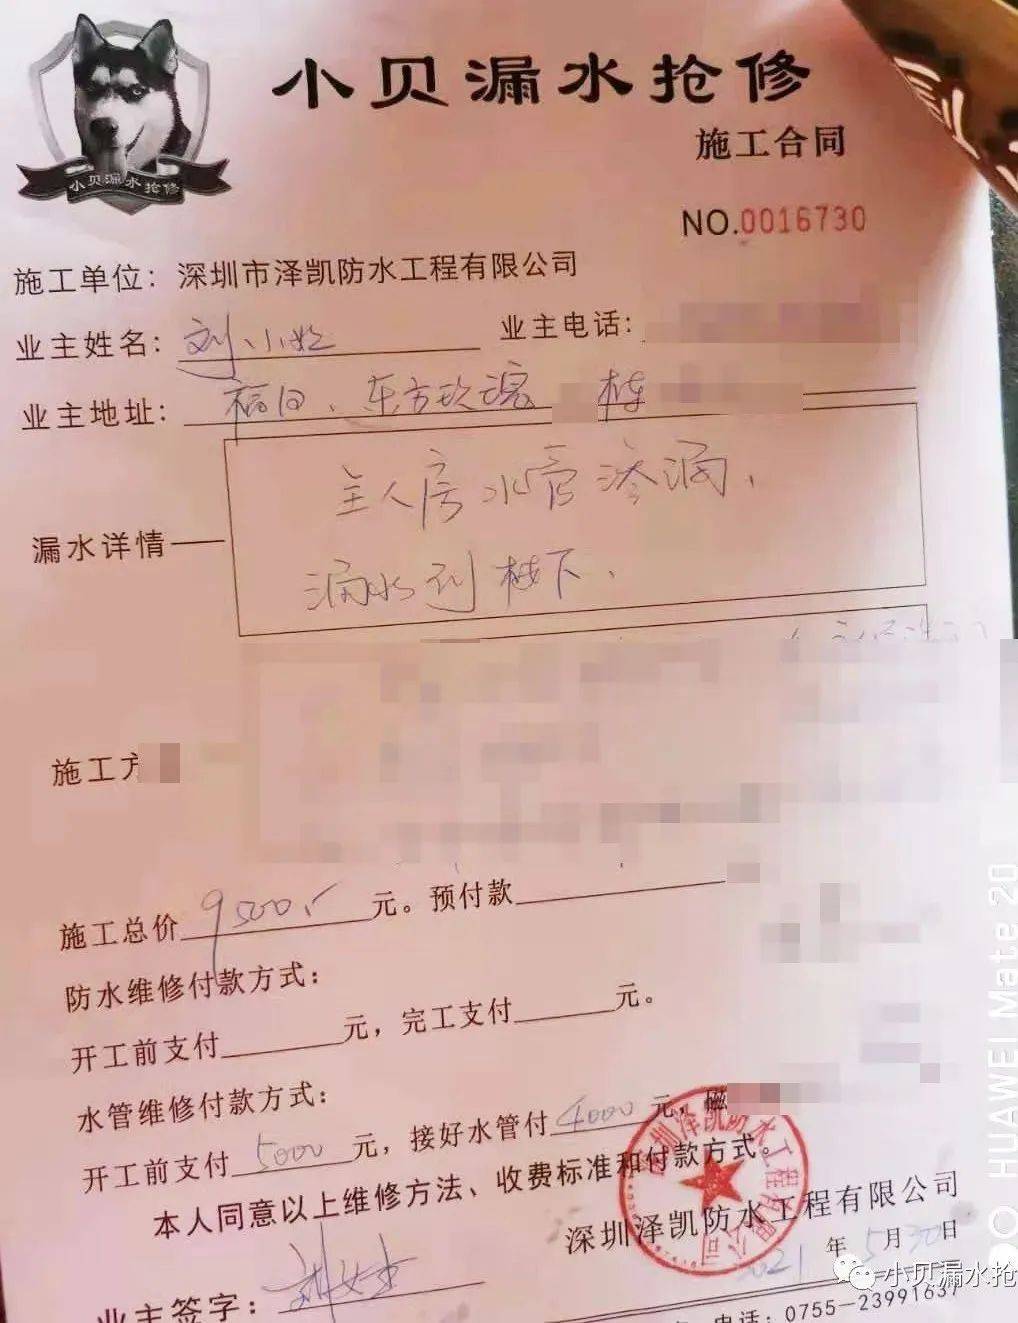 小贝漏水抢修
小贝漏水抢修
施工合同
NO.0016730
施工单位：深圳市泽凯防水工程有限公司
业主姓名：刘小姐 业主电话：
业主地址：福田、东方玫瑰 栋
主人房水管渗漏，
漏水详情
漏水到楼下，
施工方
施工总价 9500 元。预付款
防水维修付款方式：
开工前支付 元，完工支付 元。
水管维修付款方式：
开工前支付 5000 元，接好水管付 4000 元，
本人同意以上维修方法、收费标准和付款方式。
深圳泽凯防水工程有限公司
2021年5月30日
业主签字：刘女士
电话：0755-23991637
圳泽凯防水工程有限公司
小贝漏水抢
HUAWEI Mate 20